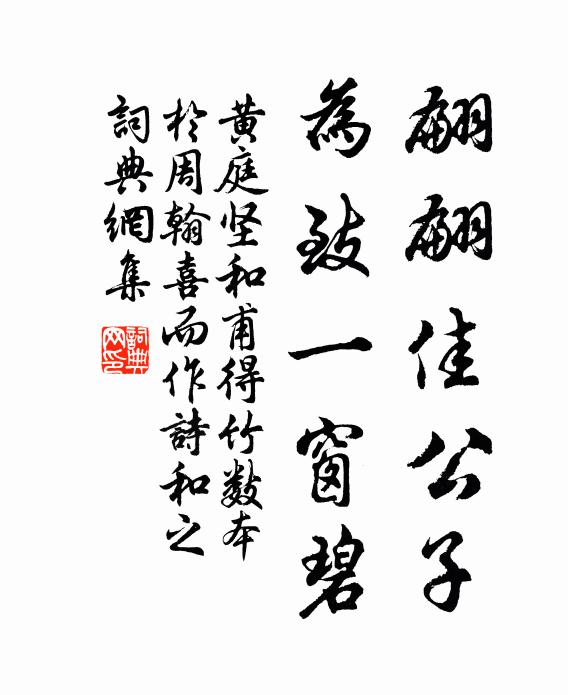 翩翩佳公子
為致一窗碧
黄庭坚和甫得竹數本
於周翰喜而作詩和之
詞典網集
詞典
网印